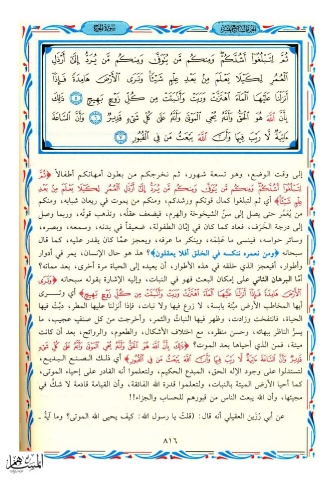 سورة الحج
ثُمَّ لِتَبْلُغُوا أَشُدَّكُمْ وَمِنكُم مَّن يُتَوَفَّىٰ وَمِنكُم مَّن يُرَدُّ إِلَىٰ أَرْذَلِ
الْعُمُرِ لِكَيْلَا يَعْلَمَ مِن بَعْدِ عِلْمٍ شَيْئًا وَتَرَى الْأَرْضَ هَامِدَةً فَإِذَا
أَنزَلْنَا عَلَيْهَا الْمَاءَ اهْتَزَّتْ وَرَبَتْ وَأَنبَتَتْ مِن كُلِّ زَوْجٍ بَهِيجٍ ٥ ذَٰلِكَ
بِأَنَّ اللَّهَ هُوَ الْحَقُّ وَأَنَّهُ يُحْيِي الْمَوْتَىٰ وَأَنَّهُ عَلَىٰ كُلِّ شَيْءٍ قَدِيرٌ ٦ وَأَنَّ السَّاعَةَ
آتِيَةٌ لَّا رَيْبَ فِيهَا وَأَنَّ اللَّهَ يَبْعَثُ مَن فِي الْقُبُورِ ٧
إلى وقت الوضع، وهو تسعة شهور، ثم نخرجكم من بطون أمهاتكم أطفالاً ﴿ثُمَّ
لِتَبْلُغُوا أَشُدَّكُمْ وَمِنكُم مَّن يُتَوَفَّىٰ وَمِنكُم مَّن يُرَدُّ إِلَىٰ أَرْذَلِ الْعُمُرِ لِكَيْلَا يَعْلَمَ مِن بَعْدِ عِلْمٍ
شَيْئًا﴾ أي ثم لتبلغوا كمال قوتكم ورشدكم، ومنكم من يموت في ريعان شبابه، ومنكم
من يُعمّر حتى يصل إلى سنّ الشيخوخة والهرم، فيضعف عقله، وتذهب قوته، وربما وصل
إلى درجة الخَرَف، فعاد كما كان في إبّان الطفولة، ضعيفاً في بدنه، وسمعه، وبصره،
وسائر حواسه، فينسى ما علمه، وينكر ما عرفه، ويعجز عمّا كان يقدر عليه، كما قال
سبحانه ﴿ومن نعمره ننكسه في الخلق أفلا يعقلون﴾؟ هذ هو حال الإنسان، يمر في أدوار
وأطوار، أفيعجز الذي خلقه في هذه الأطوار، أن يعيده إلى الحياة مرة أخرى، بعد مماته؟
أما البرهان الثاني على إمكان البعث فهو في النبات، وإليه الإشارة بقوله سبحانه ﴿وَتَرَى
الْأَرْضَ هَامِدَةً فَإِذَا أَنزَلْنَا عَلَيْهَا الْمَاءَ اهْتَزَّتْ وَرَبَتْ وَأَنبَتَتْ مِن كُلِّ زَوْجٍ بَهِيجٍ﴾ أي وتـرى
أيها المخاطب الأرض ميّتة يابسة، لا زرع فيها ولا نبات، فإذا أنزلنا عليها المطر، دبّت فيها
الحياة، فانتفخت وزادت، وظهر فيها النباتُ والثمر، وأخرجت من كل صنفٍ عجيب، ما
يسرُّ الناظر ببهائه، وحسن منظره، مع اختلاف الأشكال، والطعوم، والروائح، بعد أن كانت
ميتة، فمن الذي أحياها بعد الموت؟ ﴿ذَٰلِكَ بِأَنَّ اللَّهَ هُوَ الْحَقُّ وَأَنَّهُ يُحْيِي الْمَوْتَىٰ وَأَنَّهُ عَلَىٰ كُلِّ شَيْءٍ
قَدِيرٌ وَأَنَّ السَّاعَةَ آتِيَةٌ لَّا رَيْبَ فِيهَا وَأَنَّ اللَّهَ يَبْعَثُ مَن فِي الْقُبُورِ﴾ أي ذلك الصنع البديع،
لتستدلوا على وجود الإله الحق، المبدع الحكيم، ولتعلموا أنه القادر على إحياء الموتى،
كما أحيا الأرض الميتة بالنبات، ولتعلموا قدرة الله الفائقة، وأن القيامة قادمة لا شكّ في
مجيئها، وأن الله يبعث الناس من قبورهم للحساب والجزاء!!
عن أبي رَزين العقيلي أنه قال: (قلتُ يا رسول الله: كيف يحيى الله الموتى؟ وما آيةُ
٨١٦